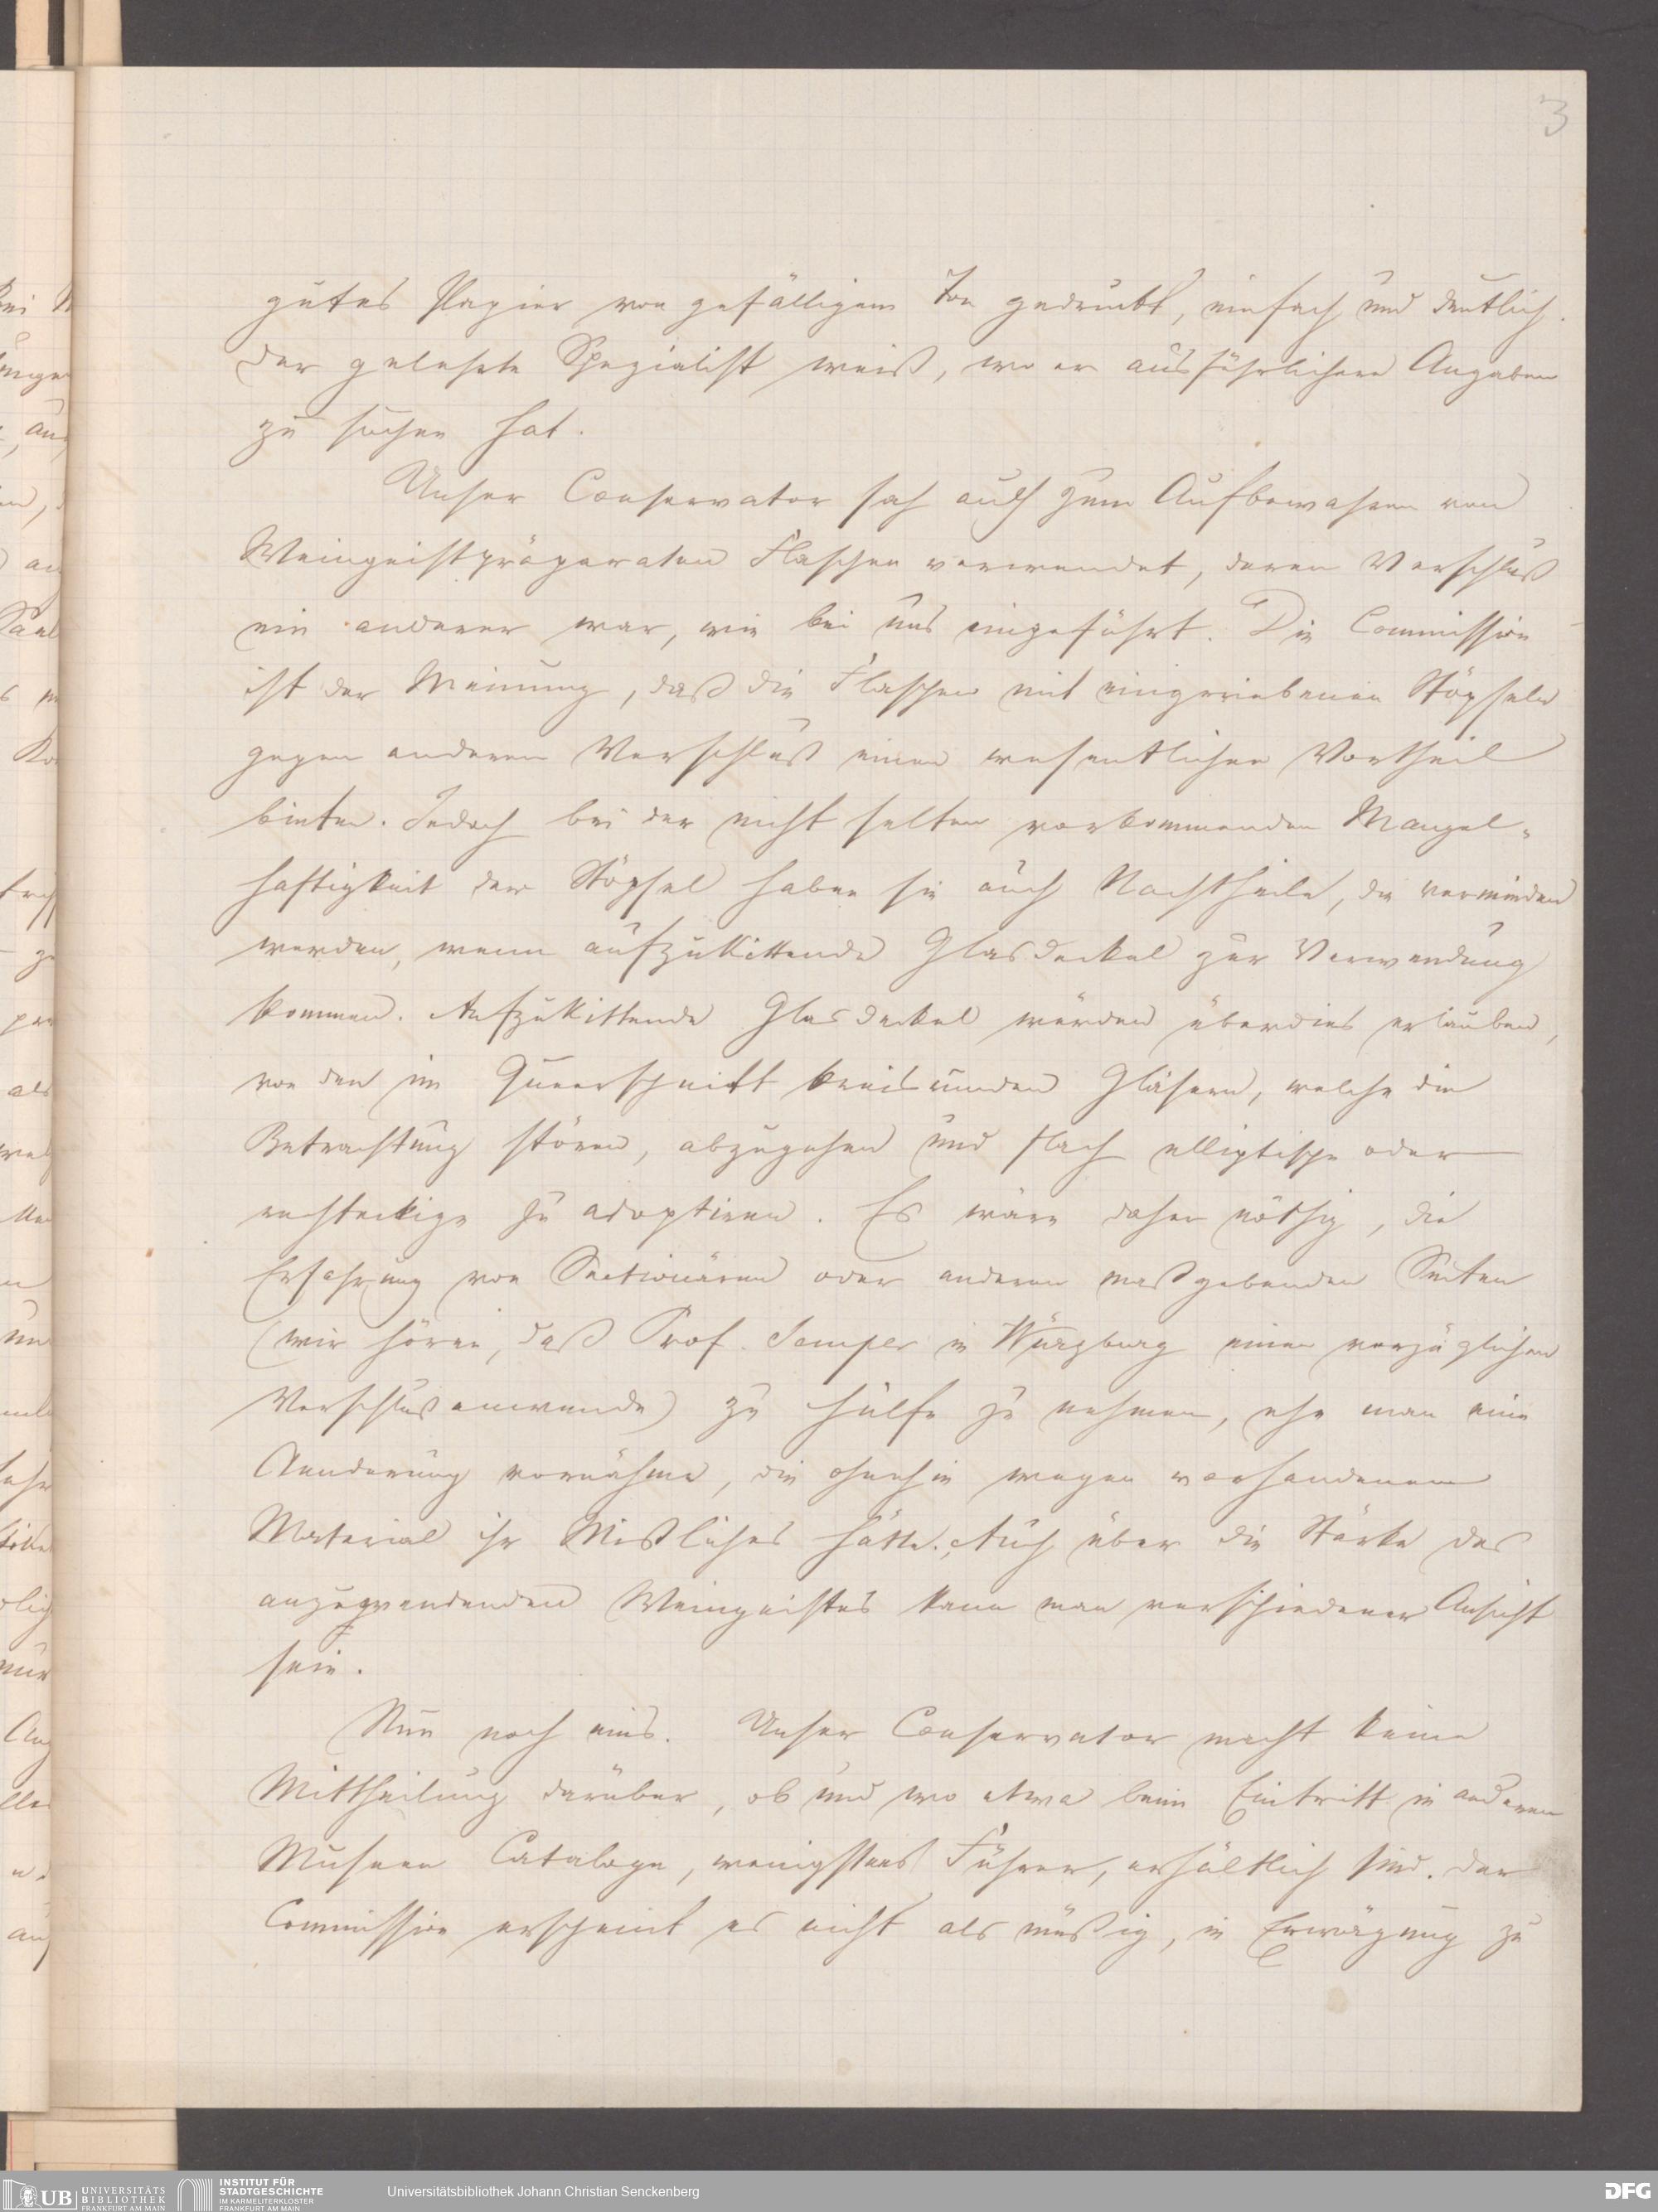 3
gutes Papier von gefälligem Ton gedruckt, einfach und deutlich.
Der gelehrte Spezialist weiß, wo er ausführlichere Angaben
zu suchen hat.
Unser Conservator sah auch zum Aufbewahren von
Weingeistpräparaten Flaschen verwendet, deren Verschluß
ein anderer war, wie bei uns eingeführt. Die Commission
ist der Meinung, daß die Flaschen mit eingeriebenen Stöpseln
gegen anderen Verschluß einen wesentlichen Vortheil
bieten. Jedoch bei der nicht selten vorkommenden Mangel-
haftigkeit der Stöpsel haben sie auch Nachtheile, die vermieden
werden, wenn aufzukittende Glasdeckel zur Verwendung
kommen. Aufzukittende Glasdeckel würden überdies erlauben,
von den im Querschnitt kreisrunden Gläsern, welche die
Betrachtung stören, abzugehen und flach elliptische oder
rechteckige zu adoptieren. Es wäre daher nöthig, die
Erfahrung von Sectionären oder anderen maßgebenden Seiten
(wir hören, daß Prof. Semper in Würzburg einen vorzüglichen
Verschluß anwende) zu Hülfe zu nehmen, ehe man eine
Aenderung vornähme, die ohnehin wegen vorhandenem
Material ihr Mißliches hätte. Auch über die Stärke des
anzuwendenden Weingeistes kann man verschiedener Ansicht
sein.
Nun noch eins. Unser Conservator macht keine
Mittheilung darüber, ob und wo etwa beim Eintritt in anderen
Museen Cataloge, wenigstens Führer, erhältlich sind. Der
Commission erscheint es nicht als müßig, in Erwägung zu
UB UNIVERSITÄTS
BIBLIOTHEK
FRANKFURT AM MAIN
INSTITUT FÜR
STADTGESCHICHTE
IM KARMELITERKLOSTER
FRANKFURT AM MAIN
Universitätsbibliothek Johann Christian Senckenberg
DFG